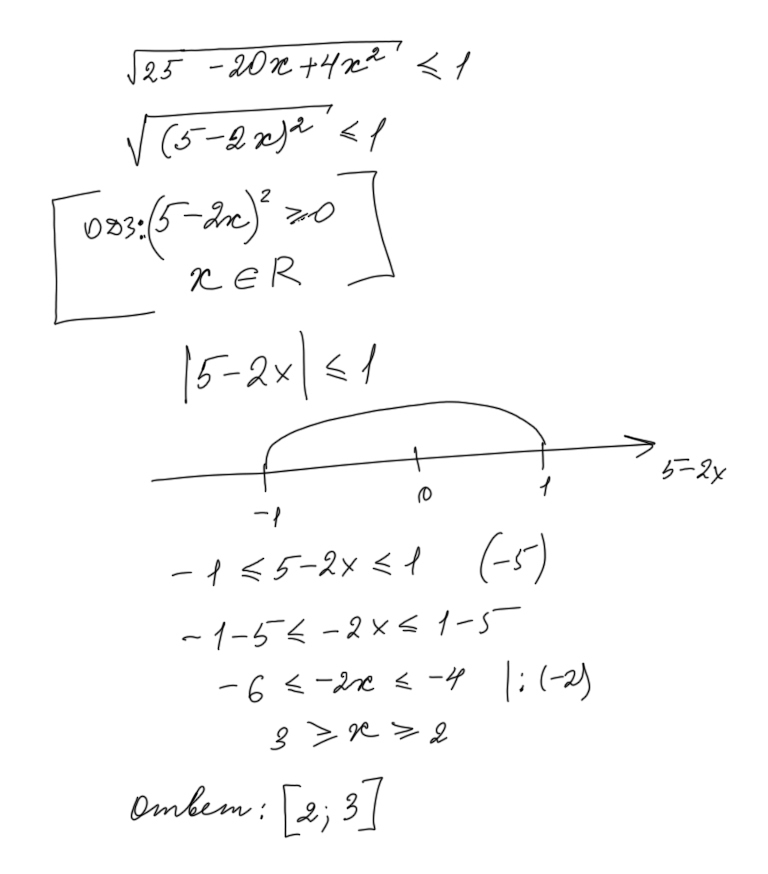 √25 -20x+4x² ⩽ 1
√(5-2x)² ⩽ 1
ОДЗ: (5-2x)² ⩾ 0
x ∈ R
|5-2x| ⩽ 1
-1 0 1 5-2x
-1 ⩽ 5-2x ⩽ 1 (-5)
-1-5 ⩽ -2x ⩽ 1-5
-6 ⩽ -2x ⩽ -4 |:(-2)
3 ⩾ x ⩾ 2
Ответ: [2; 3]